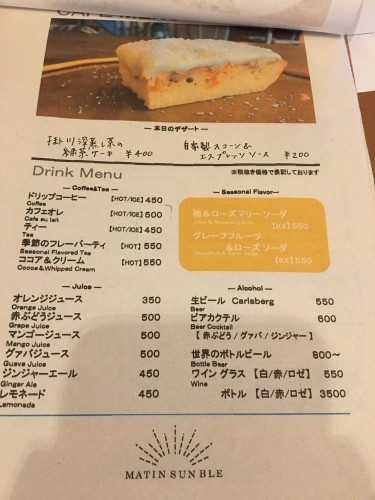 CAFE MENU
― 本日のデザート ―
掛川深蒸し茶の
緑茶ケーキ ¥400
自家製スコーン&
エスプレッソソース ¥200
Drink Menu
※税抜き価格で表記しております
― Coffee&Tea ―
ドリップコーヒー 【HOT/ICE】 450
Coffee
カフェオレ 【HOT/ICE】 500
Cafe au lait
ティー 【HOT/ICE】 450
Tea
季節のフレーバーティ 【HOT】 550
Seasonal Flavored Tea
ココア&クリーム 【HOT】 550
Cocoa&Whipped Cream
― Seasonal Flavor―
梅&ローズマリーソーダ
【ICE】 550
グレープフルーツ
&ローズ ソーダ
【ICE】 550
― Juice ―
オレンジジュース 350
Orange Juice
赤ぶどうジュース 500
Grape Juice
マンゴージュース 500
Mango Juice
グァバジュース 500
Guava Juice
ジンジャーエール 450
Ginger Ale
レモネード 450
Lemonade
― Alcohol ―
生ビール Carlsberg 550
Beer
ビアカクテル 600
Beer Cocktail
【 赤ぶどう / グァバ / ジンジャー 】
世界のボトルビール 800～
Bottle Beer
ワイン グラス 【白/赤/ロゼ】 550
Wine
ボトル 【白/赤/ロゼ】 3500
MATIN SUN BLE